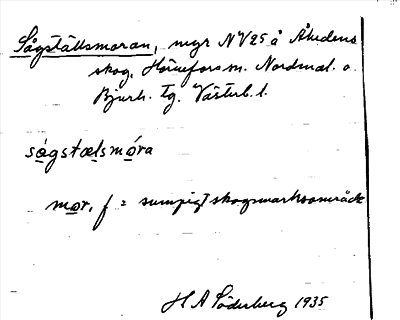 Sågställsmoran, myr NV25 å Åhedens
skog, Hörnefors m. Nordmal. o.
Bjurh. tg. Västerb. l.
sågstælsmóra
mor, f = sumpigt skogsmarksområde
H A Söderberg 1935